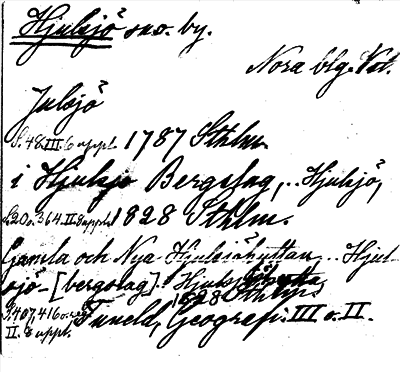 Hjulsjö sn o. by.
Nora blg. Vst.
Julsjö
S. 48. III. 6 uppl. 1787 Sthlm
i Hjulsjö Bergslag, .. Hjulsjö,
S. 20 o. 364. II. 8 uppl. 1828 Sthlm.
Gamla och Nya Hjulsjöhyttan, .. Hjul-
sjö- [bergslag]. Hjulsjöhytta
1828 Sthlm.
S. 407, 416 o. Tuneld, Geografi. III o. II.
II. 8 uppl.